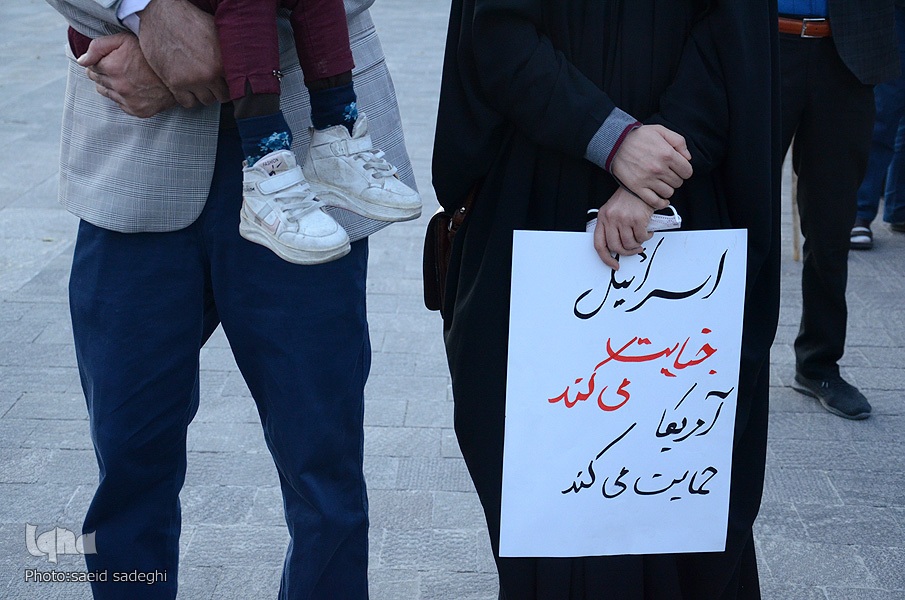 اسرائیل
جنایت
می کند
آمریکا
حمایت می کند
iqna
Photo:saeid sadeghi